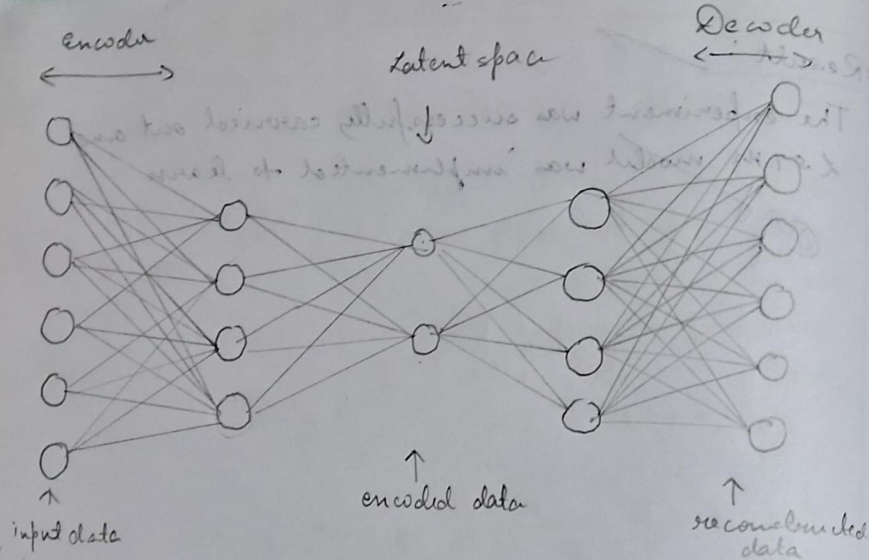 Encoder
Latent space
Decoder
encoded data
input data
reconstructed
data